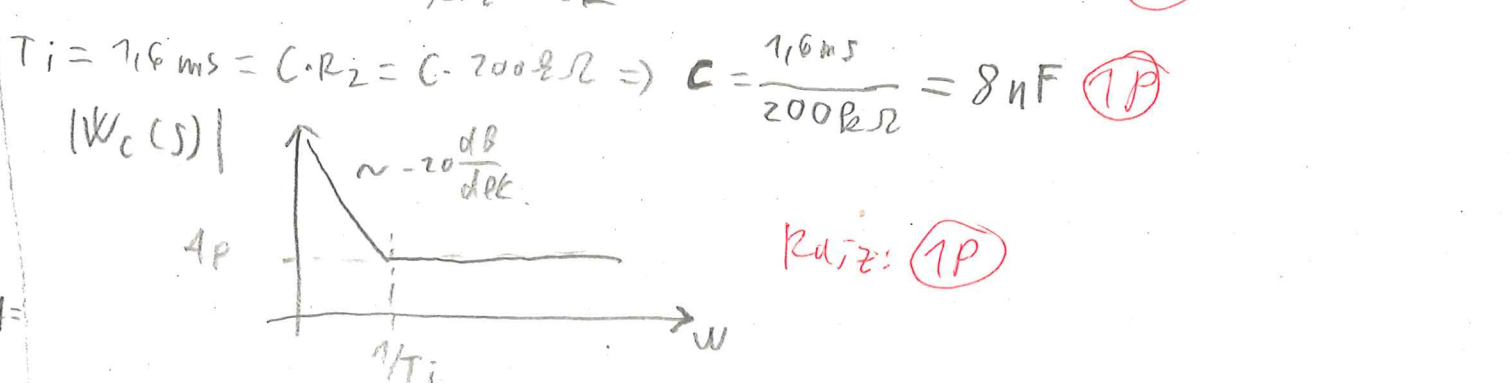 Ti = 1,6 ms = C·R2 = C· 200kΩ => C = 1,6ms / 200kΩ = 8nF 1P
|Wc(s)|
~ -20 dB/dek.
Ap
Rajz: 1P
ω
1/Ti